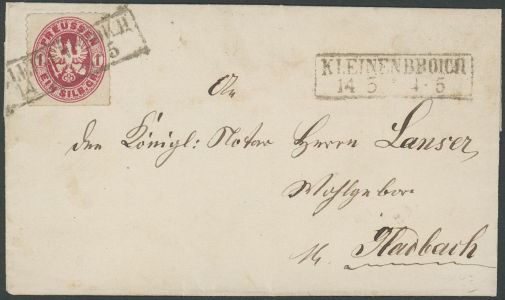 PREUSSEN
1 1
EIN SILB.GR.
KLEINENBROICH
14 5 4-5
An
den Königl: Notar Herrn Lanser,
Wohlgebor
Gladbach